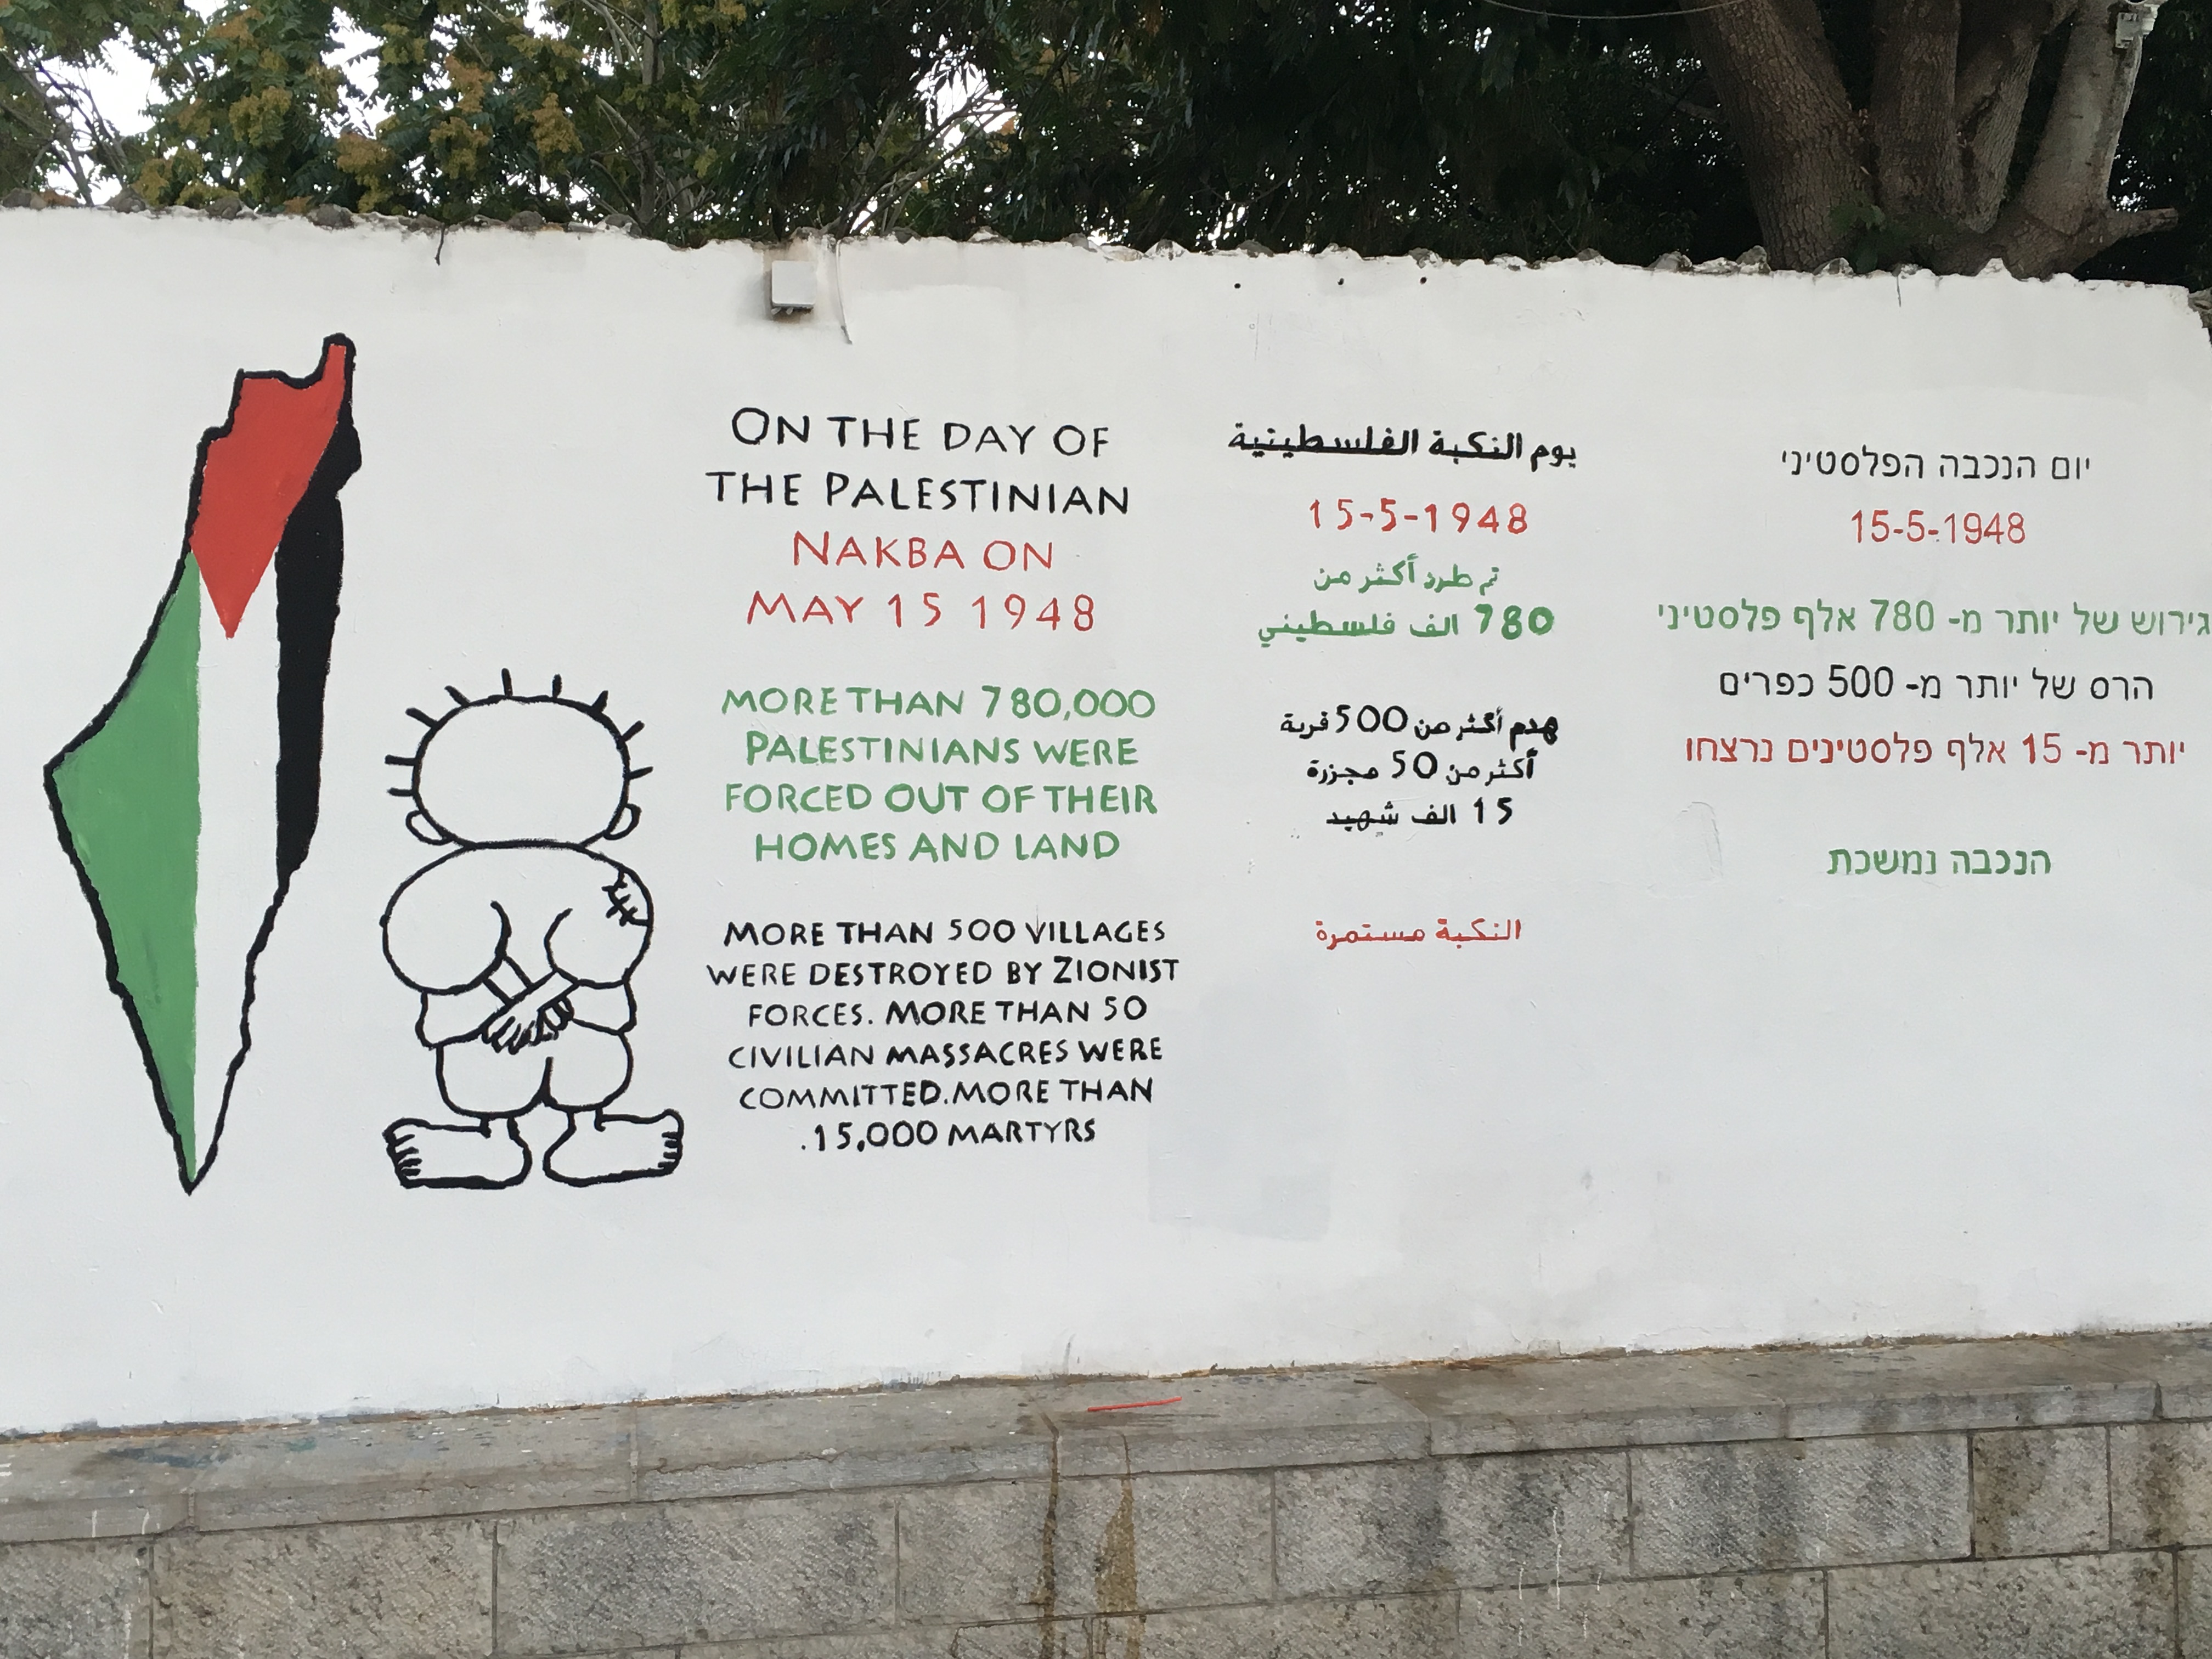 ON THE DAY OF
THE PALESTINIAN
NAKBA ON
MAY 15 1948
MORE THAN 780,000
PALESTINIANS WERE
FORCED OUT OF THEIR
HOMES AND LAND
MORE THAN 500 VILLAGES
WERE DESTROYED BY ZIONIST
FORCES. MORE THAN 50
CIVILIAN MASSACRES WERE
COMMITTED.MORE THAN
.15,000 MARTYRS
يوم النكبة الفلسطينية
15-5-1948
تم طرد أكثر من
780 الف فلسطيني
هدم أكثر من 500 قرية
أكثر من 50 مجزرة
15 الف شهيد
النكبة مستمرة
יום הנכבה הפלסטיני
15-5-1948
גירוש של יותר מ- 780 אלף פלסטיני
הרס של יותר מ- 500 כפרים
יותר מ- 15 אלף פלסטינים נרצחו
הנכבה נמשכת